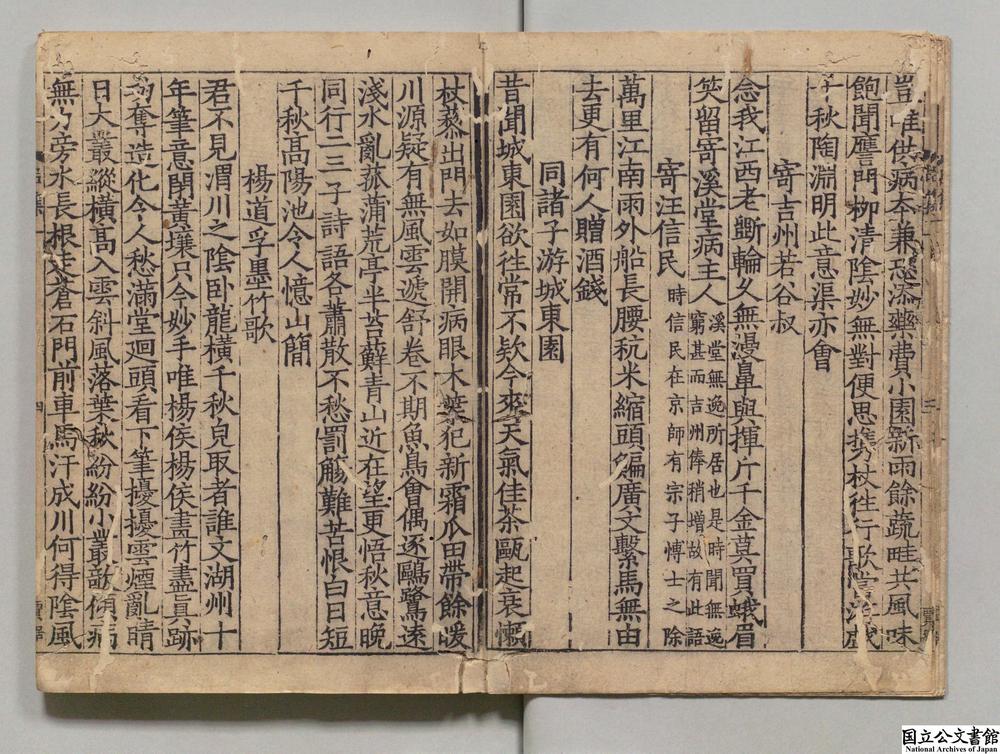 豈唯供病本兼恐添藥費小園新雨餘蔬畦共風味
飽聞譍門柳清陰妙無對便思携杖徃行歌
秋陶淵明此意渠亦㑹
寄吉州若谷叔
念我江西老斵輪久無漫鼻與揮斤千金莫買蛾眉
笑留寄溪堂病主人
溪堂無逸所居也是時聞無逸
窮甚而吉州俸稍增故有此語
寄汪信民
時信民在京師有宗子愽士之除
萬里江南雨外船長腰秔米縮頭鯿廣文繫馬無由
去更有何人贈酒錢
同諸子游城東園
昔聞城東園欲徃常不欵今來天氣佳茶甌起衰懶
杖藜出門去如膜開病眼木葉犯新霜瓜田帶餘暖
川源疑有無風雲遞舒卷不期魚鳥㑹偶逐鷗鷺逺
淺水亂菰蒲荒亭半苔蘚青山近在望更悟秋意晚
同行二三子詩語各蕭散不愁罰觴難苦恨白日短
千秋髙陽池令人憶山簡
楊道孚墨竹歌
君不見渭川之陰卧龍横千秋皃取者誰文湖州十
年筆意閉黄壤只今妙手唯楊侯楊侯畫竹盡真跡
奪造化令人愁滿堂廻頭看下筆擾擾雲煙亂晴
日大叢縱横髙入雲斜風落葉秋紛紛小叢欹傾病
無乃旁水長根走蒼石門前車馬汗成川何得陰風
国立公文書館
National Archives of Japan